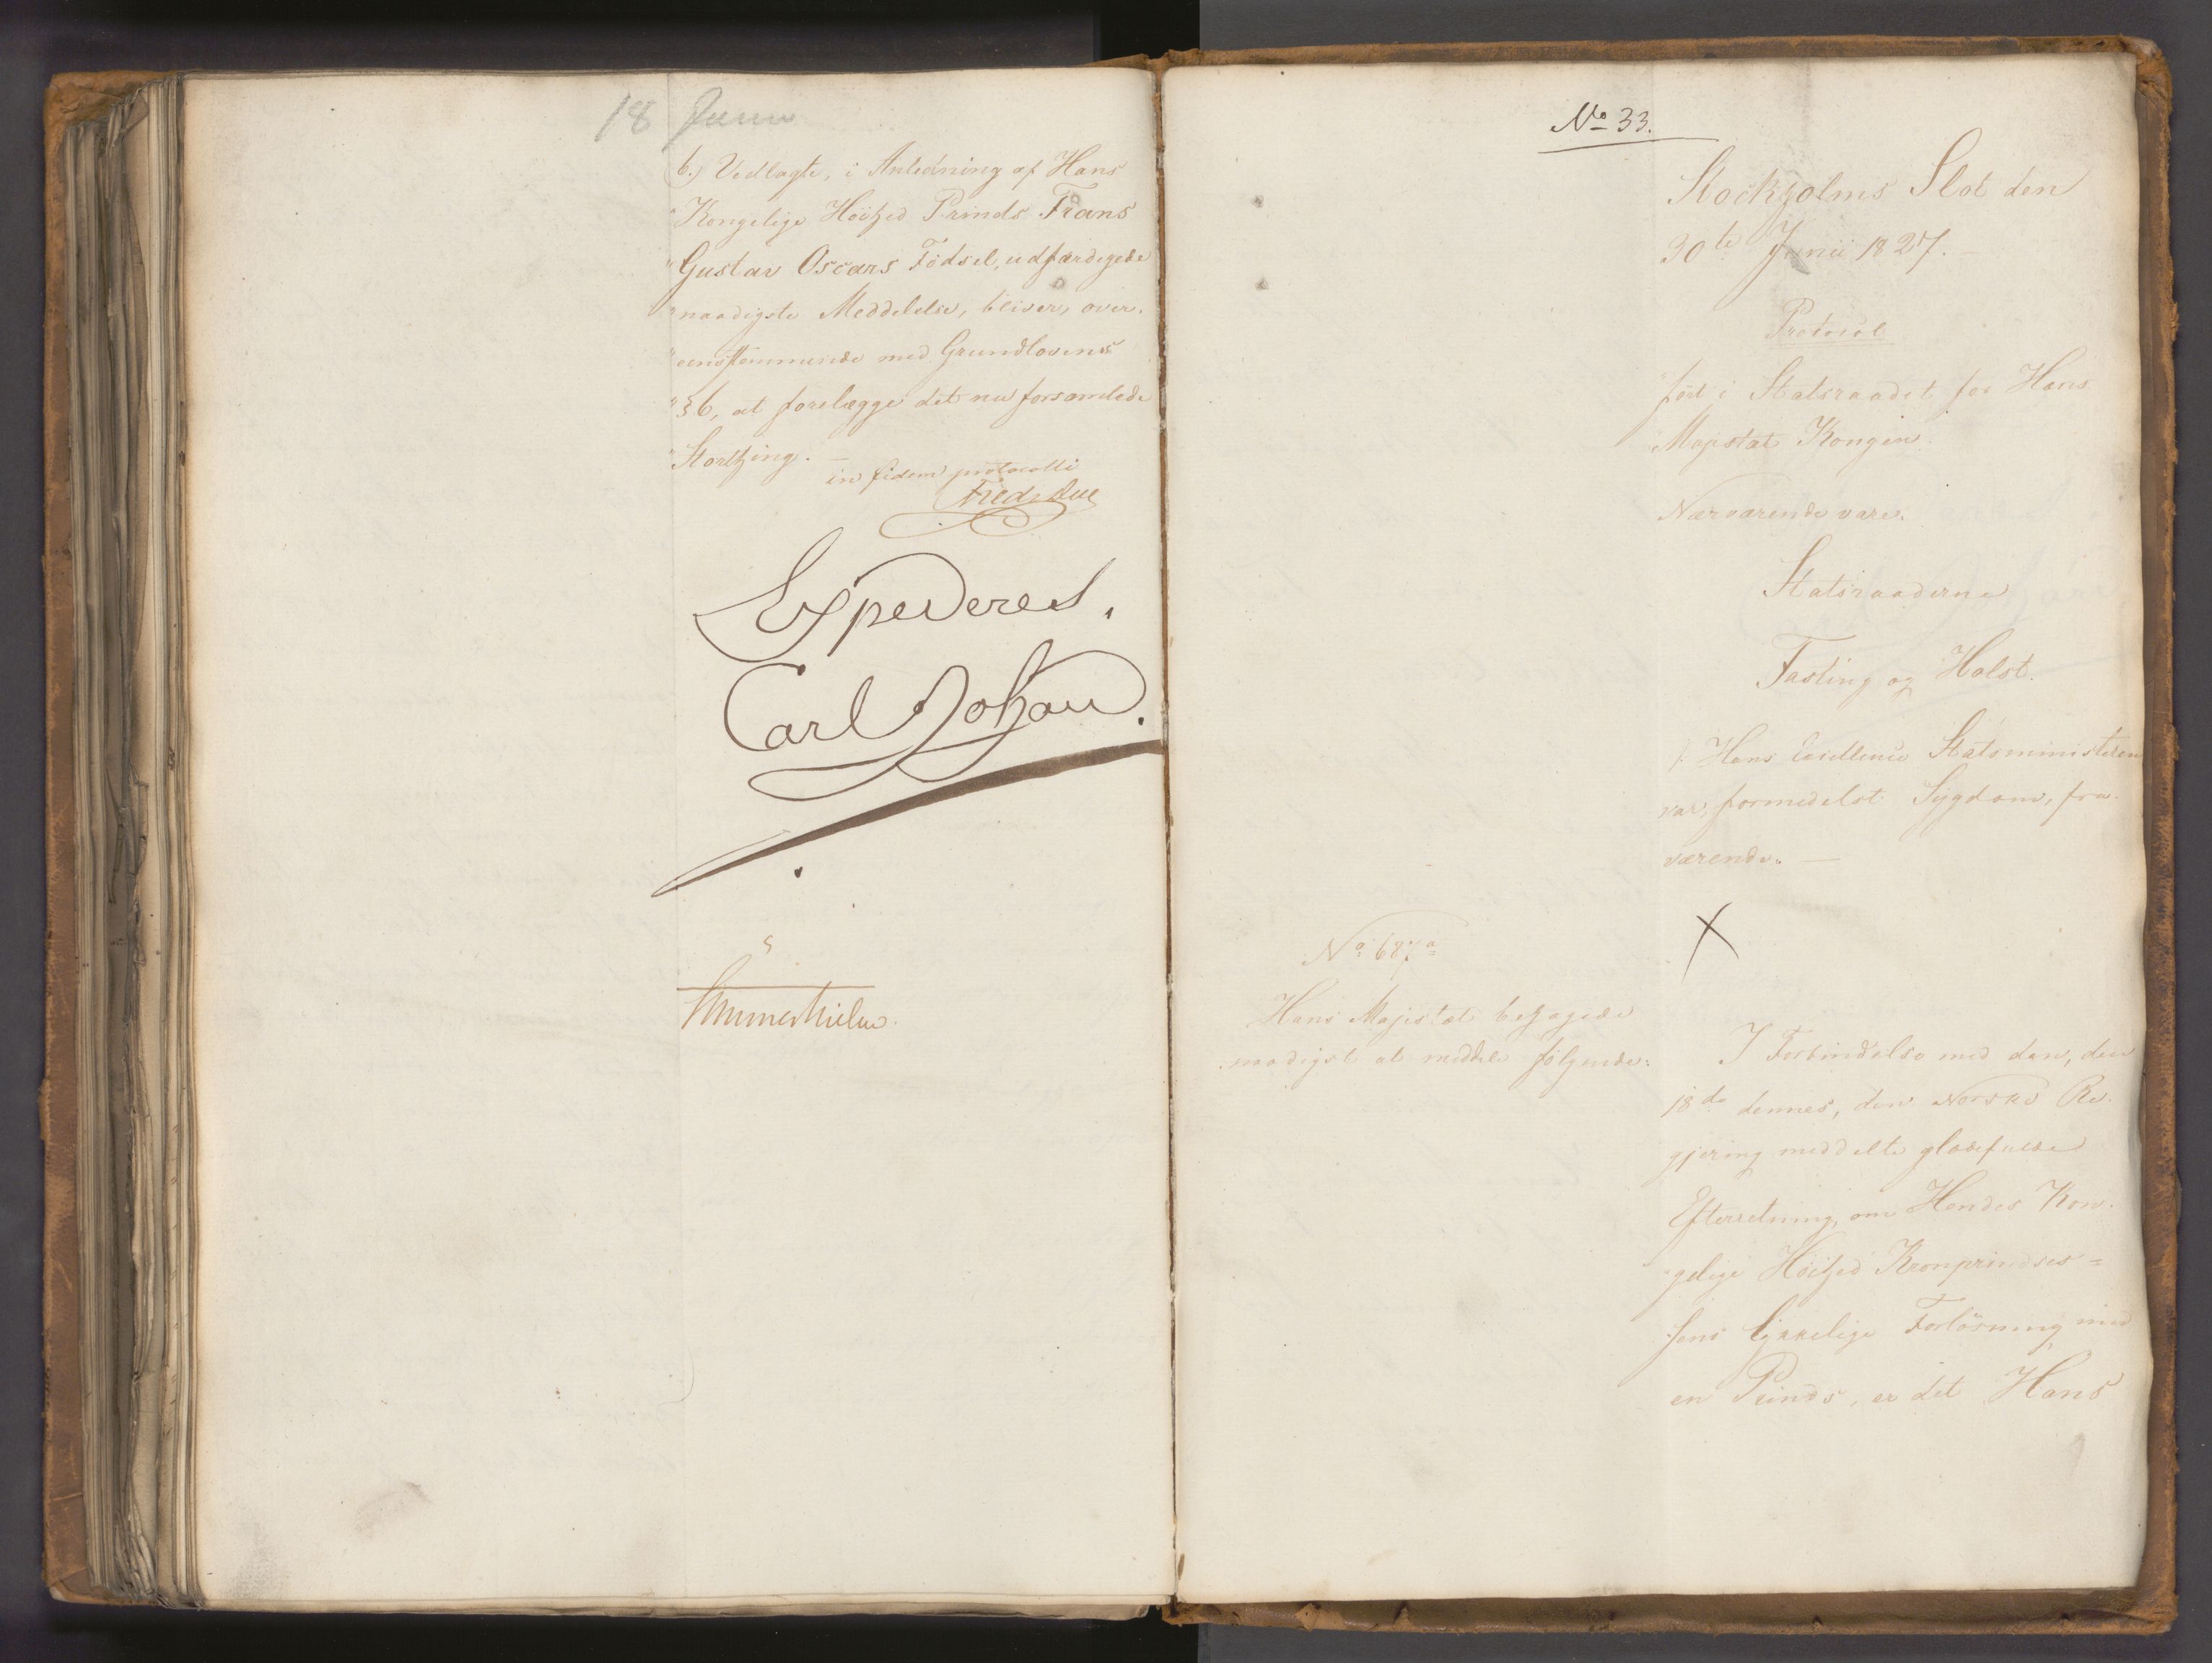 18 Junii
b.) Vedlagte, i Anledning af Hans
"Kongelige Höihed Prinds Frans
"Gustav Oscars Födsel, udfærdigede
"naadigste Meddelelse, bliver, over-
"eensstemmende med Grundlovens
"§ 6, at forelægge det nu forsamlede
"Storthing. —
in fidem protocolli
Fred. Due
Expederes.
Carl Johan.
No 33.
Stockholms Slot den
30te Junii 1827. —
Protocol
fört i Statsraadet for Hans
Majestæt Kongen.
Nærværende vare.
Statsraaderne
Fasting og Holst.
/: Hans Excellence Statsministeren
var, formedelst Sygdom, fra-
værende. —
X
No
Hans Majestæt behagede
naadigst at meddele fölgende:
I Forbindelse med den, den
18de dennes, den Norske Re-
gjering meddelte glædefulde
Efterretning, om Hendes Kon-
gelige Höihed Kronprindses-
sens lykkelige Forlösning med
en Prinds, er det Hans